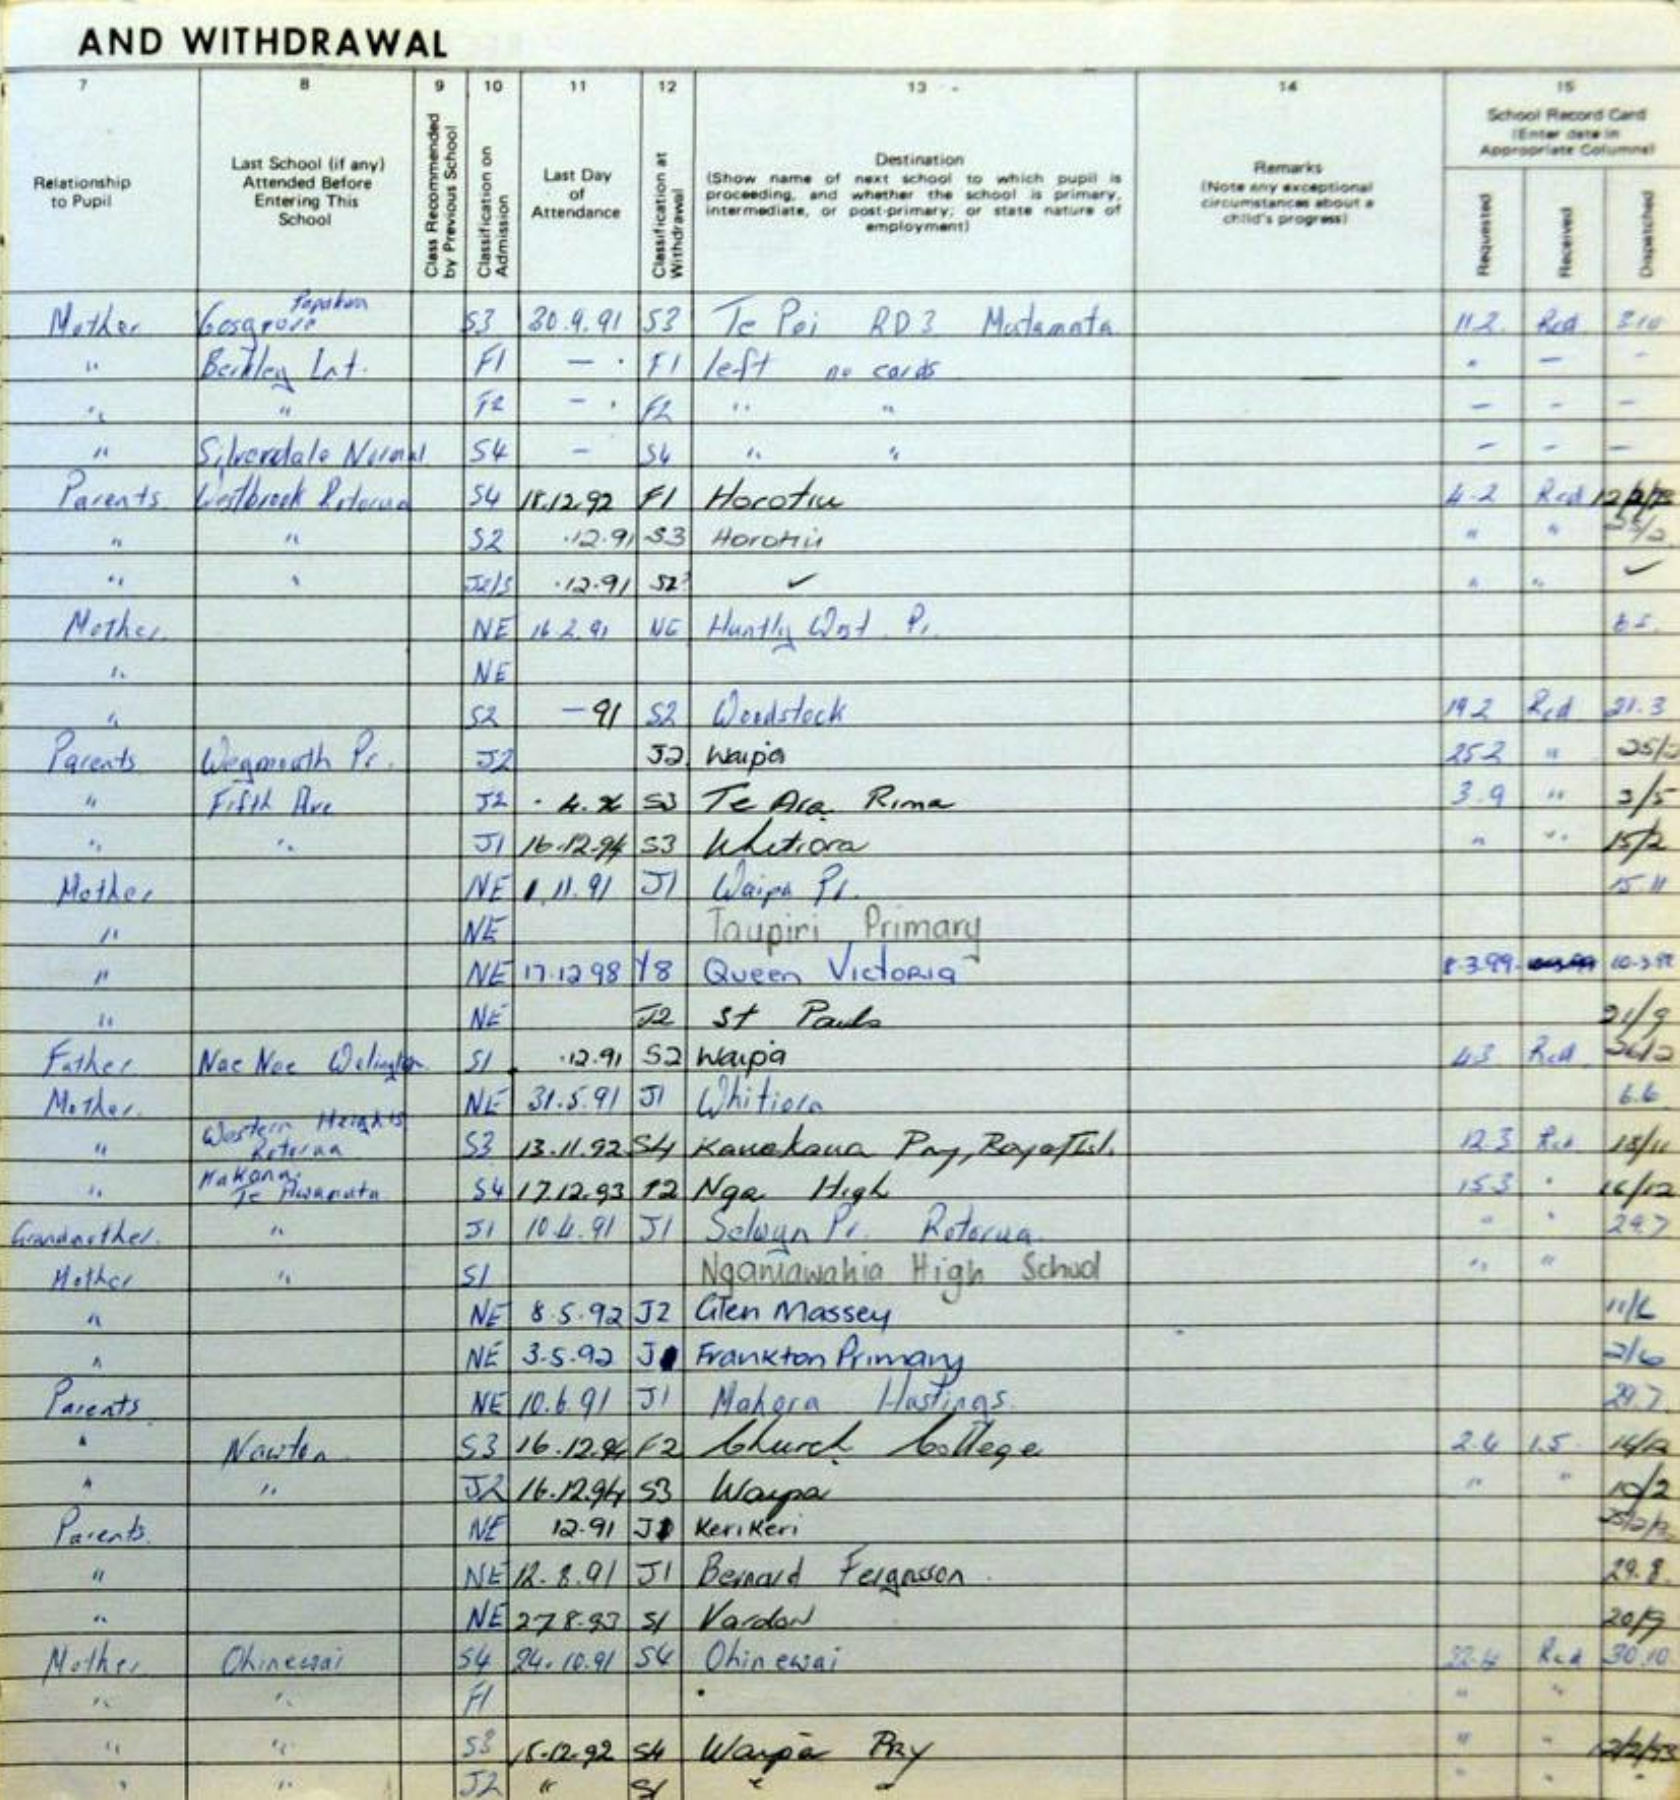 AND WITHDRAWAL
7 8 9 10 11 12 13 14 15
Relationship to Pupil
Last School (if any) Attended Before Entering This School
Class Recommended by Previous School
Classification on Admission
Last Day of Attendance
Classification at Withdrawal
Destination (Show name of next school to which pupil is proceeding, and whether the school is primary, intermediate, or post-primary; or state nature of employment)
Remarks (Note any exceptional circumstances about a child's progress)
School Record Card (Enter date in Appropriate Columns)
Requested Received Dispatched
Mother Cosgrove Papakura S3 S3 Te Poi RD3 Matamata 11.2 Rcd
" F1 - F1 left no cards - -
" " F2 - F2 " " - - -
" Silverdale Normal S4 - S4 " " - - -
Parents Westbrook Rotorua S4 18.12.92 F1 Horotiu 4.2 Rcd
" " S2 12.91 S3 Horotiu " "
" " 12.91 S2 ✓ " " ✓
Mother NE 16.2.91 NE Huntly West Pr.
" NE
" S2 -91 S2 Woodstock 19.2 Rcd 21.3
Parents Weymouth Pr. J2 J2 Waipa 25.2 "
" Fifth Ave J2 S3 Te Ara Rima 3.9 " 3/5
" " J1 16.12.94 S3 Whitiora " " 15/2
Mother NE 1.11.91 J1 Waipa Pr. 15.11
" NE Taupiri Primary
" NE 17.12.98 Y8 Queen Victoria 8.3.99
" NE J2 St Pauls 21/9
Father Nae Nae S1 12.91 S2 Waipa 4.3 Rcd
Mother NE 31.5.91 J1 Whitiora 6.6
" Western Heights Rotorua S3 13.11.92 S4 12.3 Rcd
" S4 17.12.93 F2 Nga High 15.3 " 16/12
Grandmother " J1 10.4.91 J1 Selwyn Pr. Rotorua " " 29.7
Mother " S1 Ngaruawahia High School " "
" NE 8.5.92 J2 Glen Massey
" NE 3.5.92 Frankton Primary
Parents NE 10.6.91 J1 Mahora Hastings 29.7
" Nawton S3 16.12.94 F2 Church College 2.4 1.5
" " J2 16.12.94 S3 Waipa " " 10/2
Parents NE 12.91 J1 Kerikeri
" NE 12.8.91 J1 Bernard Fergusson 29.8
" NE 27.8.93 S1 Vardon 20/9
Mother Ohinewai S4 24.10.91 S4 Ohinewai 22.4 Rcd 30.10
" " F1 " "
" " S3 S4 Waipa Pry " " 12/2/93
" " J2 " S1 " " " "